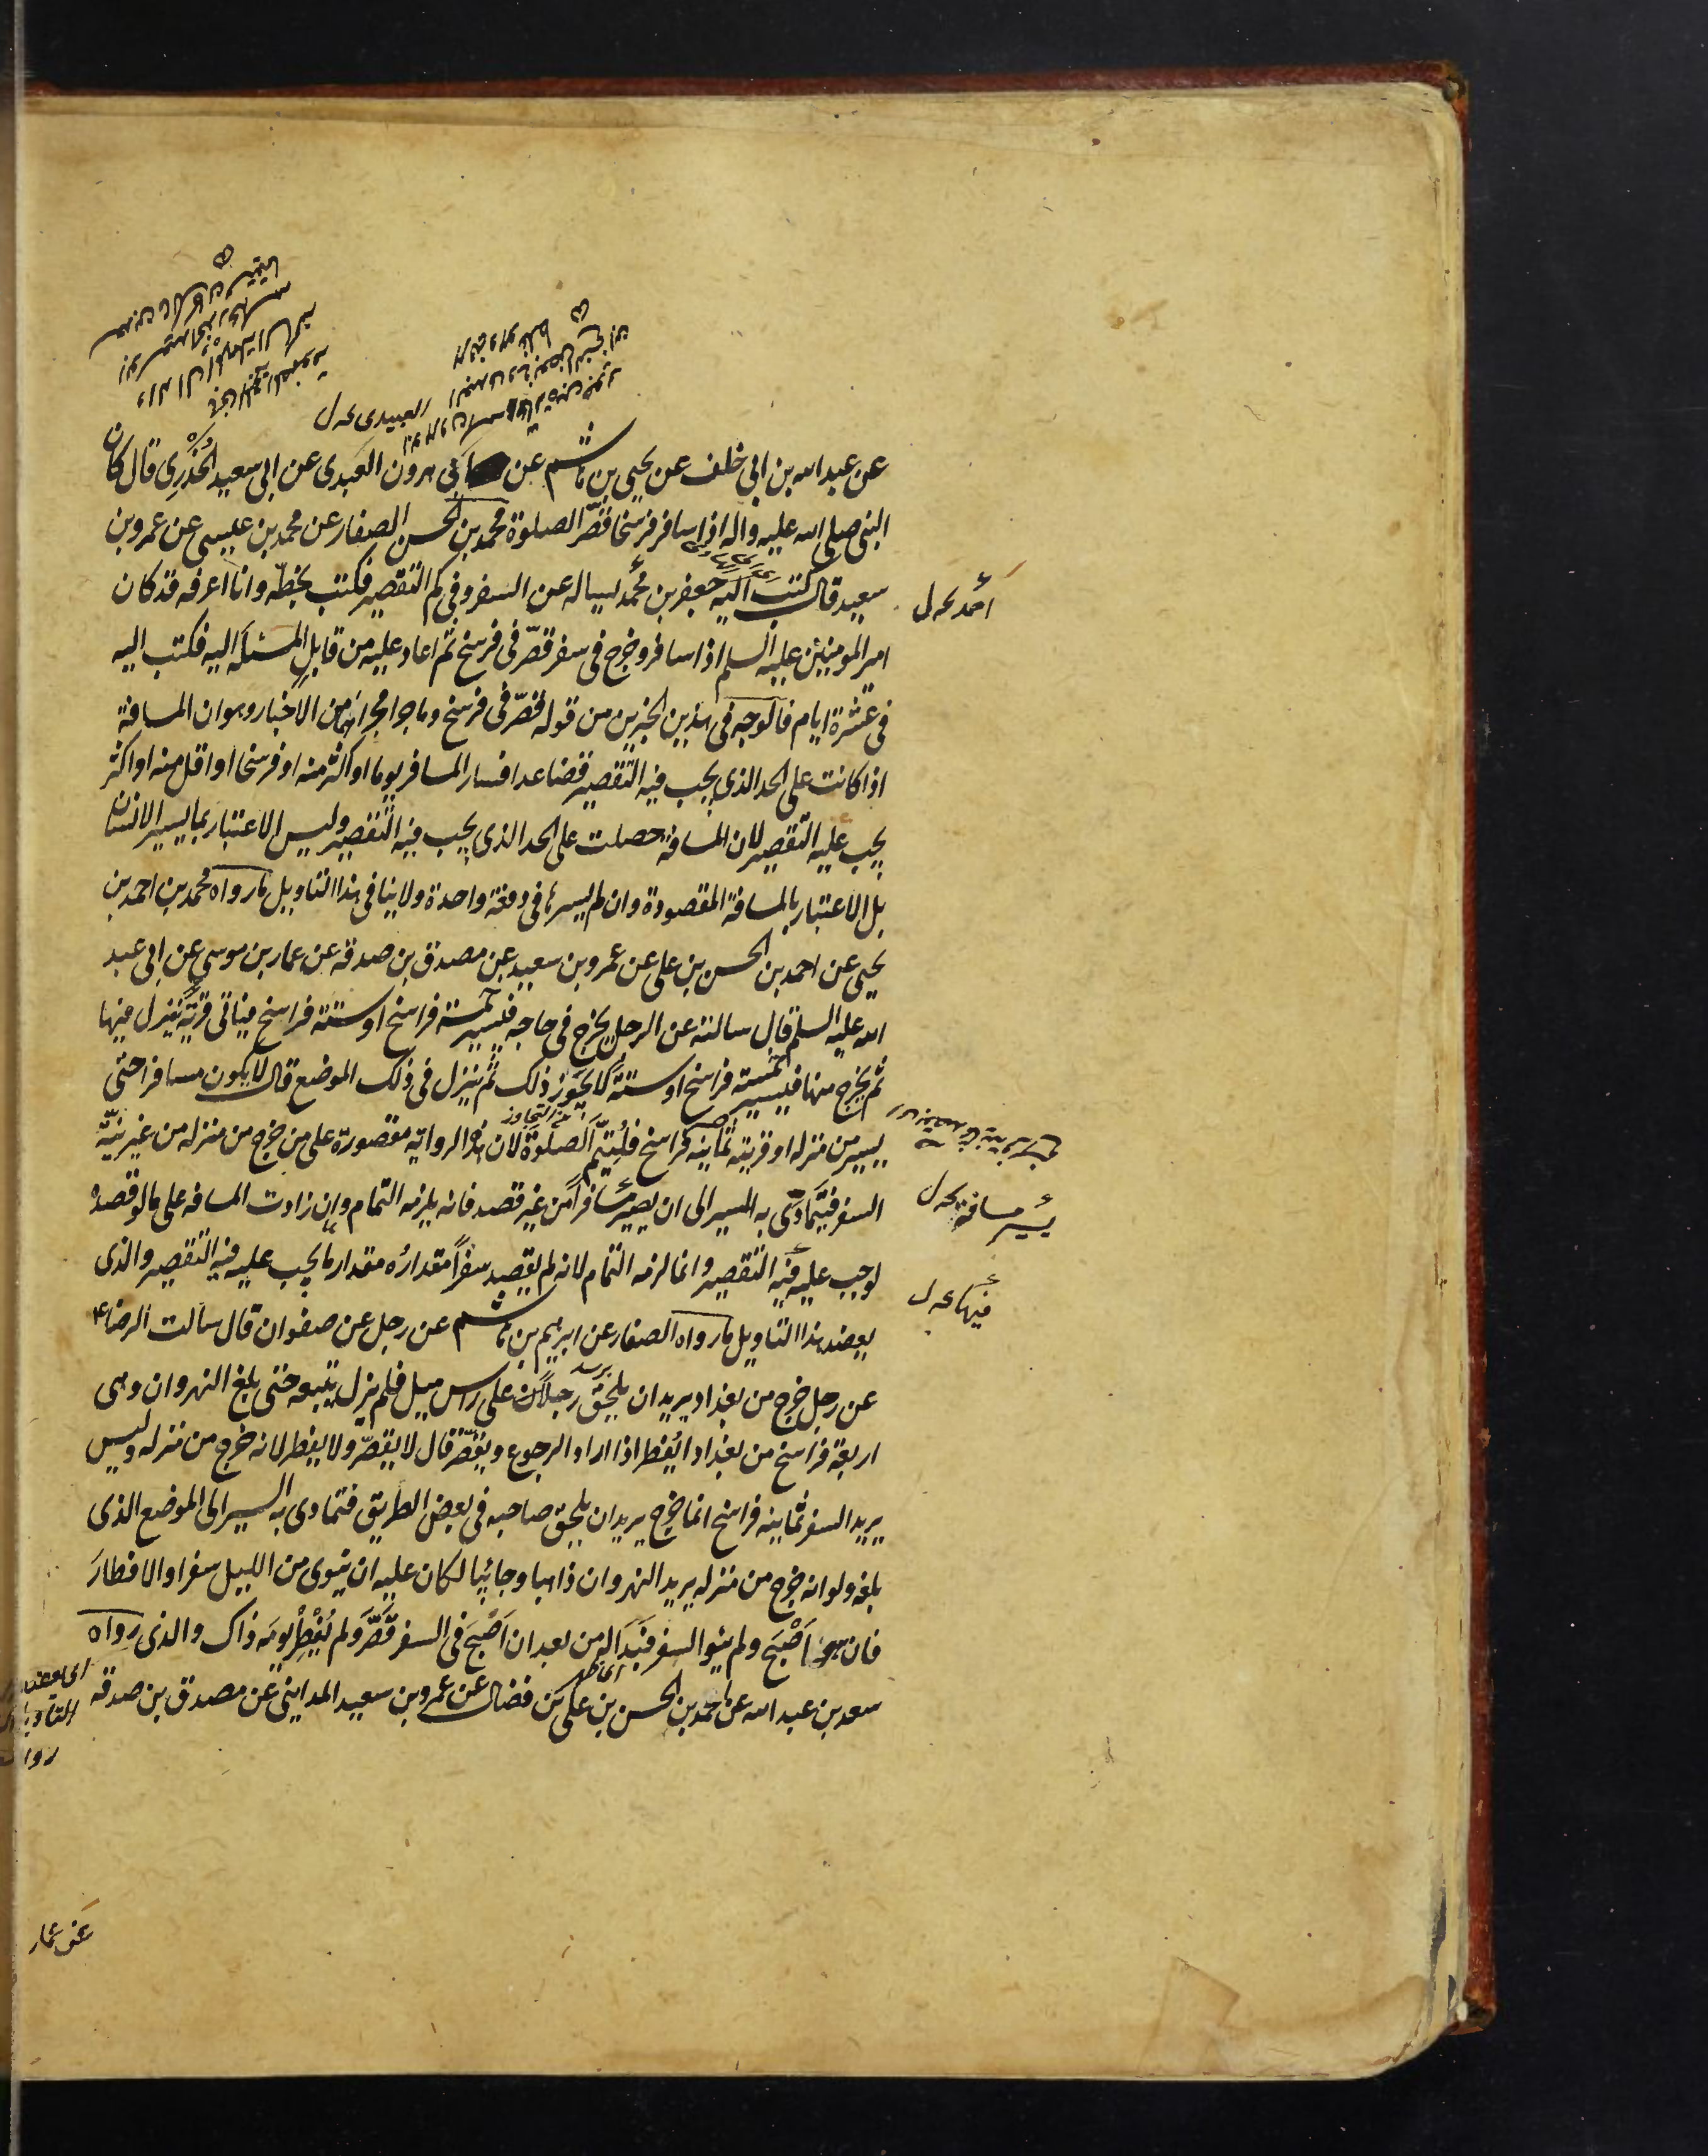 العبيدى خ ل
عن عبد الله بن ابى خلف عن يحيى بن هاشم عن ابى هرون العبدى عن ابى سعيد الخُدْرِى قال كان
النبى صلى الله عليه واله اذا سافر فرسخا قصّر الصلوة محمد بن الحسن الصفار عن محمد بن عيسى عن عمرو بن
سعيد قال كتب اليه جعفر بن محمد يساله عن السفر وفى كم التقصير فكتب بخطّه وانا اعرفه قد كان
احمد خ ل
امير المومنين عليه السلم اذا سافر وخرج فى سفر قصّر فى فرسخ ثم اعاد عليه من قابل المسئله اليه فكتب اليه
فى عشرة ايام فالوجه فى هذين الخبرين من قوله قصّر فى فرسخ وما جرا مجراهما من الاخبار وهو ان المسافة
اذا كانت على الحد الذى يجب فيه التقصير فصاعدا فسار المسافر يوما او اكثر منه او فرسخا او اقل منه او اكثر
يجب عليه التقصير لان المسافة حصلت على الحد الذى يجب فيه التقصير وليس الاعتبار بما يسير الانسان
بل الاعتبار بالمسافة المقصودة وان لم يسرها فى دفعة واحدة ولا ينافى هذا التاويل ما رواه محمد بن احمد بن
يحيى عن احمد بن الحسن بن على عن عمرو بن سعيد عن مصدق بن صدقه عن عمار بن موسى عن ابى عبد
الله عليه السلم قال سالته عن الرجل يخرج فى حاجه فيسير خمسة فراسخ او ستة فراسخ فياتى قرية فينزل فيها
ثم يخرج منها فيسير خمسة فراسخ او ستة لا يجوز ذلك ثم ينزل فى ذلك الموضع قال لا يكون مسافرا حتى
يسير من منزله او قريته ثمانيه فراسخ فليُتِمّ الصلوة لان هذه الروايه مقصورة على من خرج من منزله من غير نيّة
من التجاوز
السفر فيَتَمادّى به المسير الى ان يصير مسافرا من غير قصد فانه يلزمه التمام وان زادت المسافه على ما لو قصده
يسير مسافة خ ل
لوجب عليه فيه التقصير وانما لزمه التمام لانه لم يقصد سفراً مقدارُه مقدار ما يجب عليه فيه التقصير والذى
فيها خ ل
يعضد هذا التاويل ما رواه الصفار عن ابرهيم بن هاشم عن رجل عن صفوان قال سالت الرضا ع
عن رجل خرج من بغداد يريد ان يلحق رجلا على راس ميل فلم يزل يتبعه حتى بلغ النهروان وهى
اربعة فراسخ من بغداد ايُفطر اذا اراد الرجوع ويقصّر قال لا يقصّر ولا يفطر لانه خرج من منزله وليس
يريد السفر ثمانيه فراسخ انما خرج يريد ان يلحق صاحبه فى بعض الطريق فتمادى به السير الى الموضع الذى
بلغه ولو انه خرج من منزله يريد النهروان ذاهبا وجائيا لكان عليه ان ينوى من الليل سفرا والافطارَ
فان هو اَصْبَحَ ولم ينو السفر فبَدَا له من بعد ان اَصْبَحَ فى السفر قَصَّرَ ولم يُفْطِرْ يومَه ذاك والذى رواه
سعد بن عبد الله عن احمد بن الحسن بن على بن فضال عن عمرو بن سعيد المداينى عن مصدق بن صدقه
عن عمار